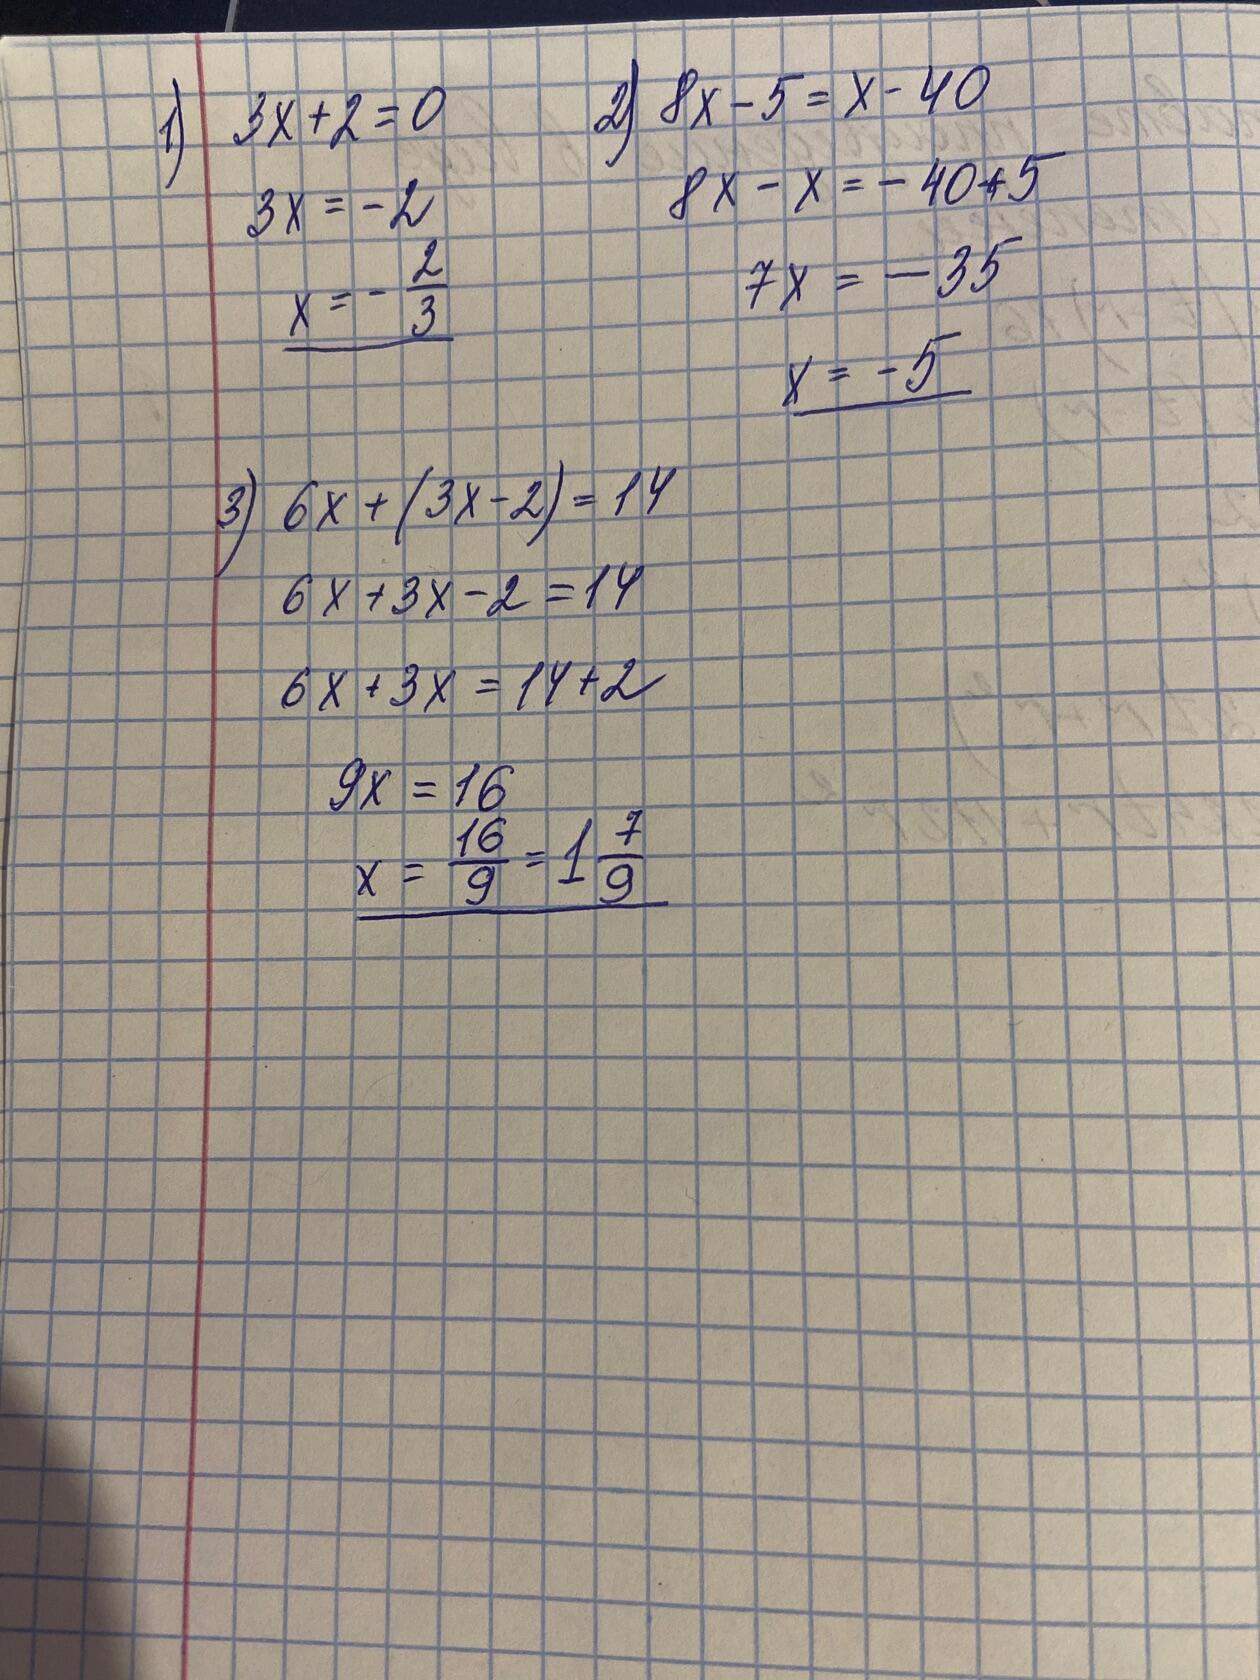 1) 3x+2=0
3x=-2
x=-2/3
2) 8x-5=x-40
8x-x=-40+5
7x=-35
x=-5
3) 6x+(3x-2)=14
6x+3x-2=14
6x+3x=14+2
9x=16
x=16/9=1 7/9